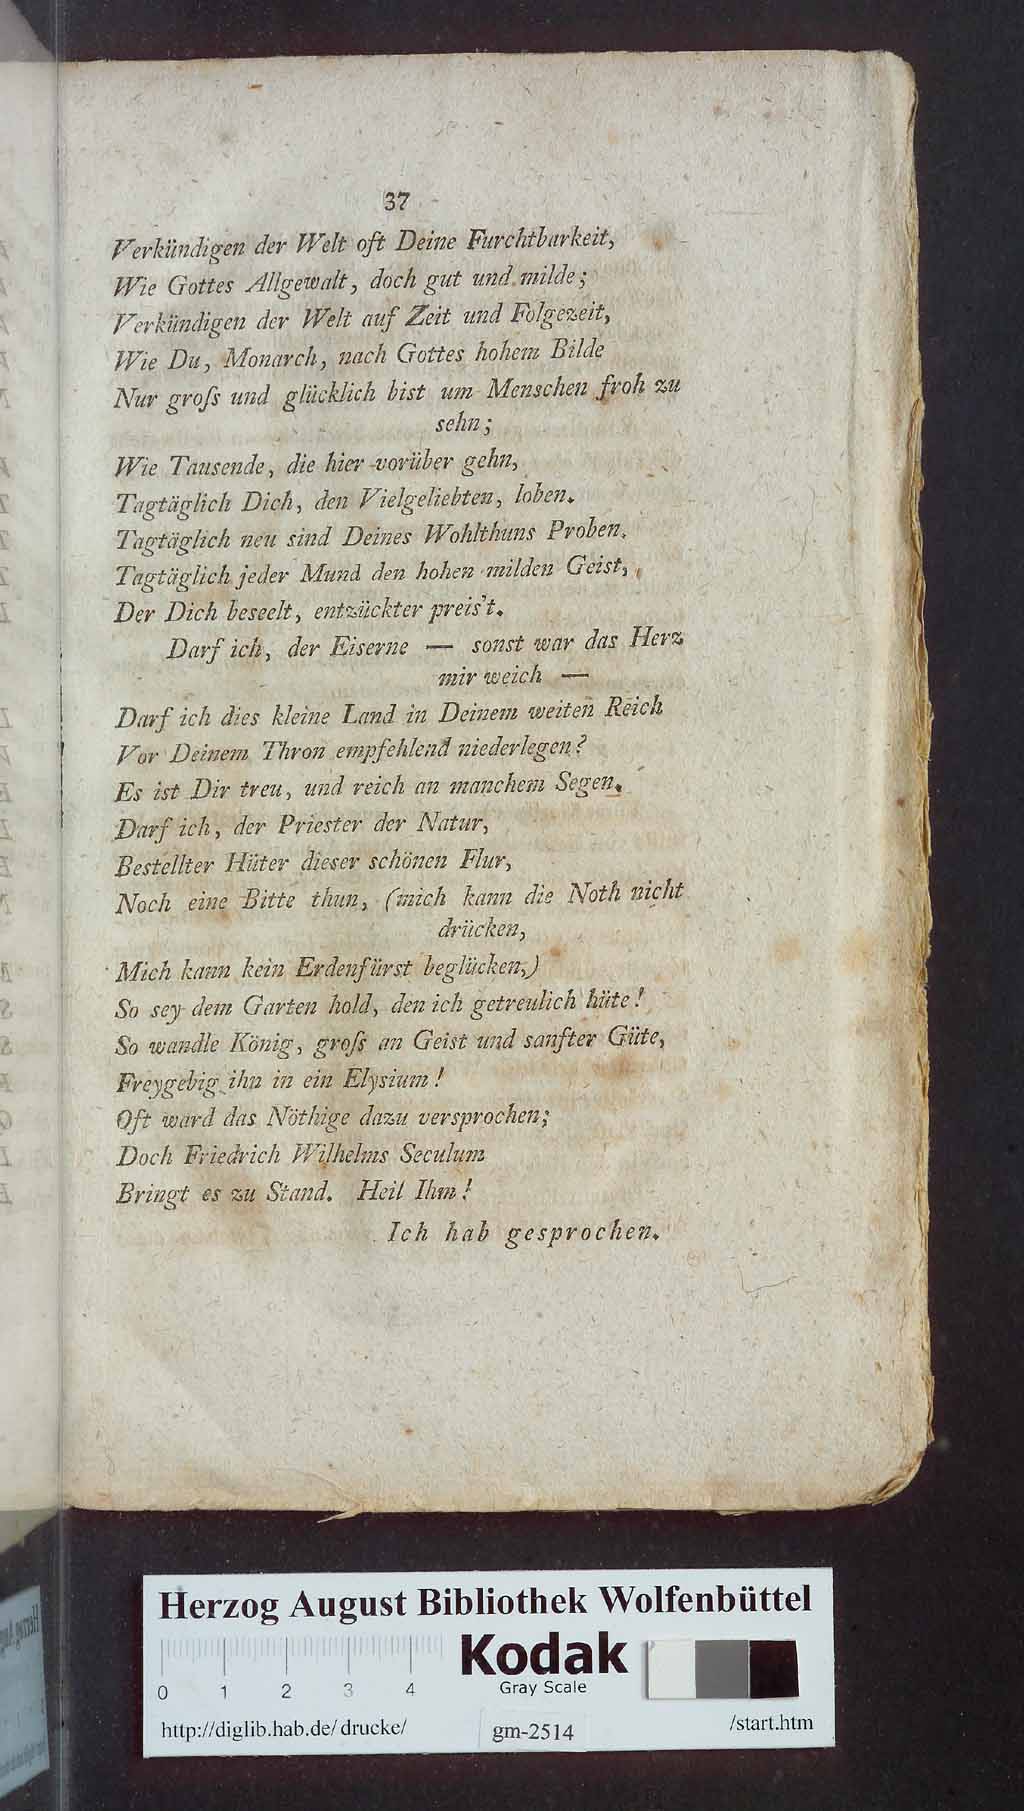 37
Verkündigen der Welt oft Deine Furchtbarkeit,
Wie Gottes Allgewalt, doch gut und milde;
Verkündigen der Welt auf Zeit und Folgezeit,
Wie Du, Monarch, nach Gottes hohem Bilde
Nur groſs und glücklich bist um Menschen froh zu
sehn;
Wie Tausende, die hier vorüber gehn,
Tagtäglich Dich, den Vielgeliebten, loben.
Tagtäglich neu sind Deines Wohlthuns Proben.
Tagtäglich jeder Mund den hohen milden Geist,
Der Dich beseelt, entzückter preis't.
Darf ich, der Eiserne — sonst war das Herz
mir weich —
Darf ich dies kleine Land in Deinem weiten Reich
Vor Deinem Thron empfehlend niederlegen?
Es ist Dir treu, und reich an manchem Segen.
Darf ich, der Priester der Natur,
Bestellter Hüter dieser schönen Flur,
Noch eine Bitte thun, (mich kann die Noth nicht
drücken,
Mich kann kein Erdenfürst beglücken,)
So sey dem Garten hold, den ich getreulich hüte!
So wandle König, groſs an Geist und sanfter Güte,
Freygebig ihn in ein Elysium!
Oft ward das Nöthige dazu versprochen;
Doch Friedrich Wilhelms Seculum
Bringt es zu Stand. Heil Ihm!
Ich hab gesprochen.
Herzog August Bibliothek Wolfenbüttel
Kodak
Gray Scale
0 1 2 3 4
http://diglib.hab.de/drucke/ gm-2514 /start.htm